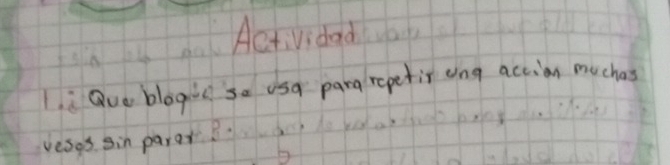 Actividad
1.¿ Que bloque se usa para repetir una accion muchas
veses sin parar?